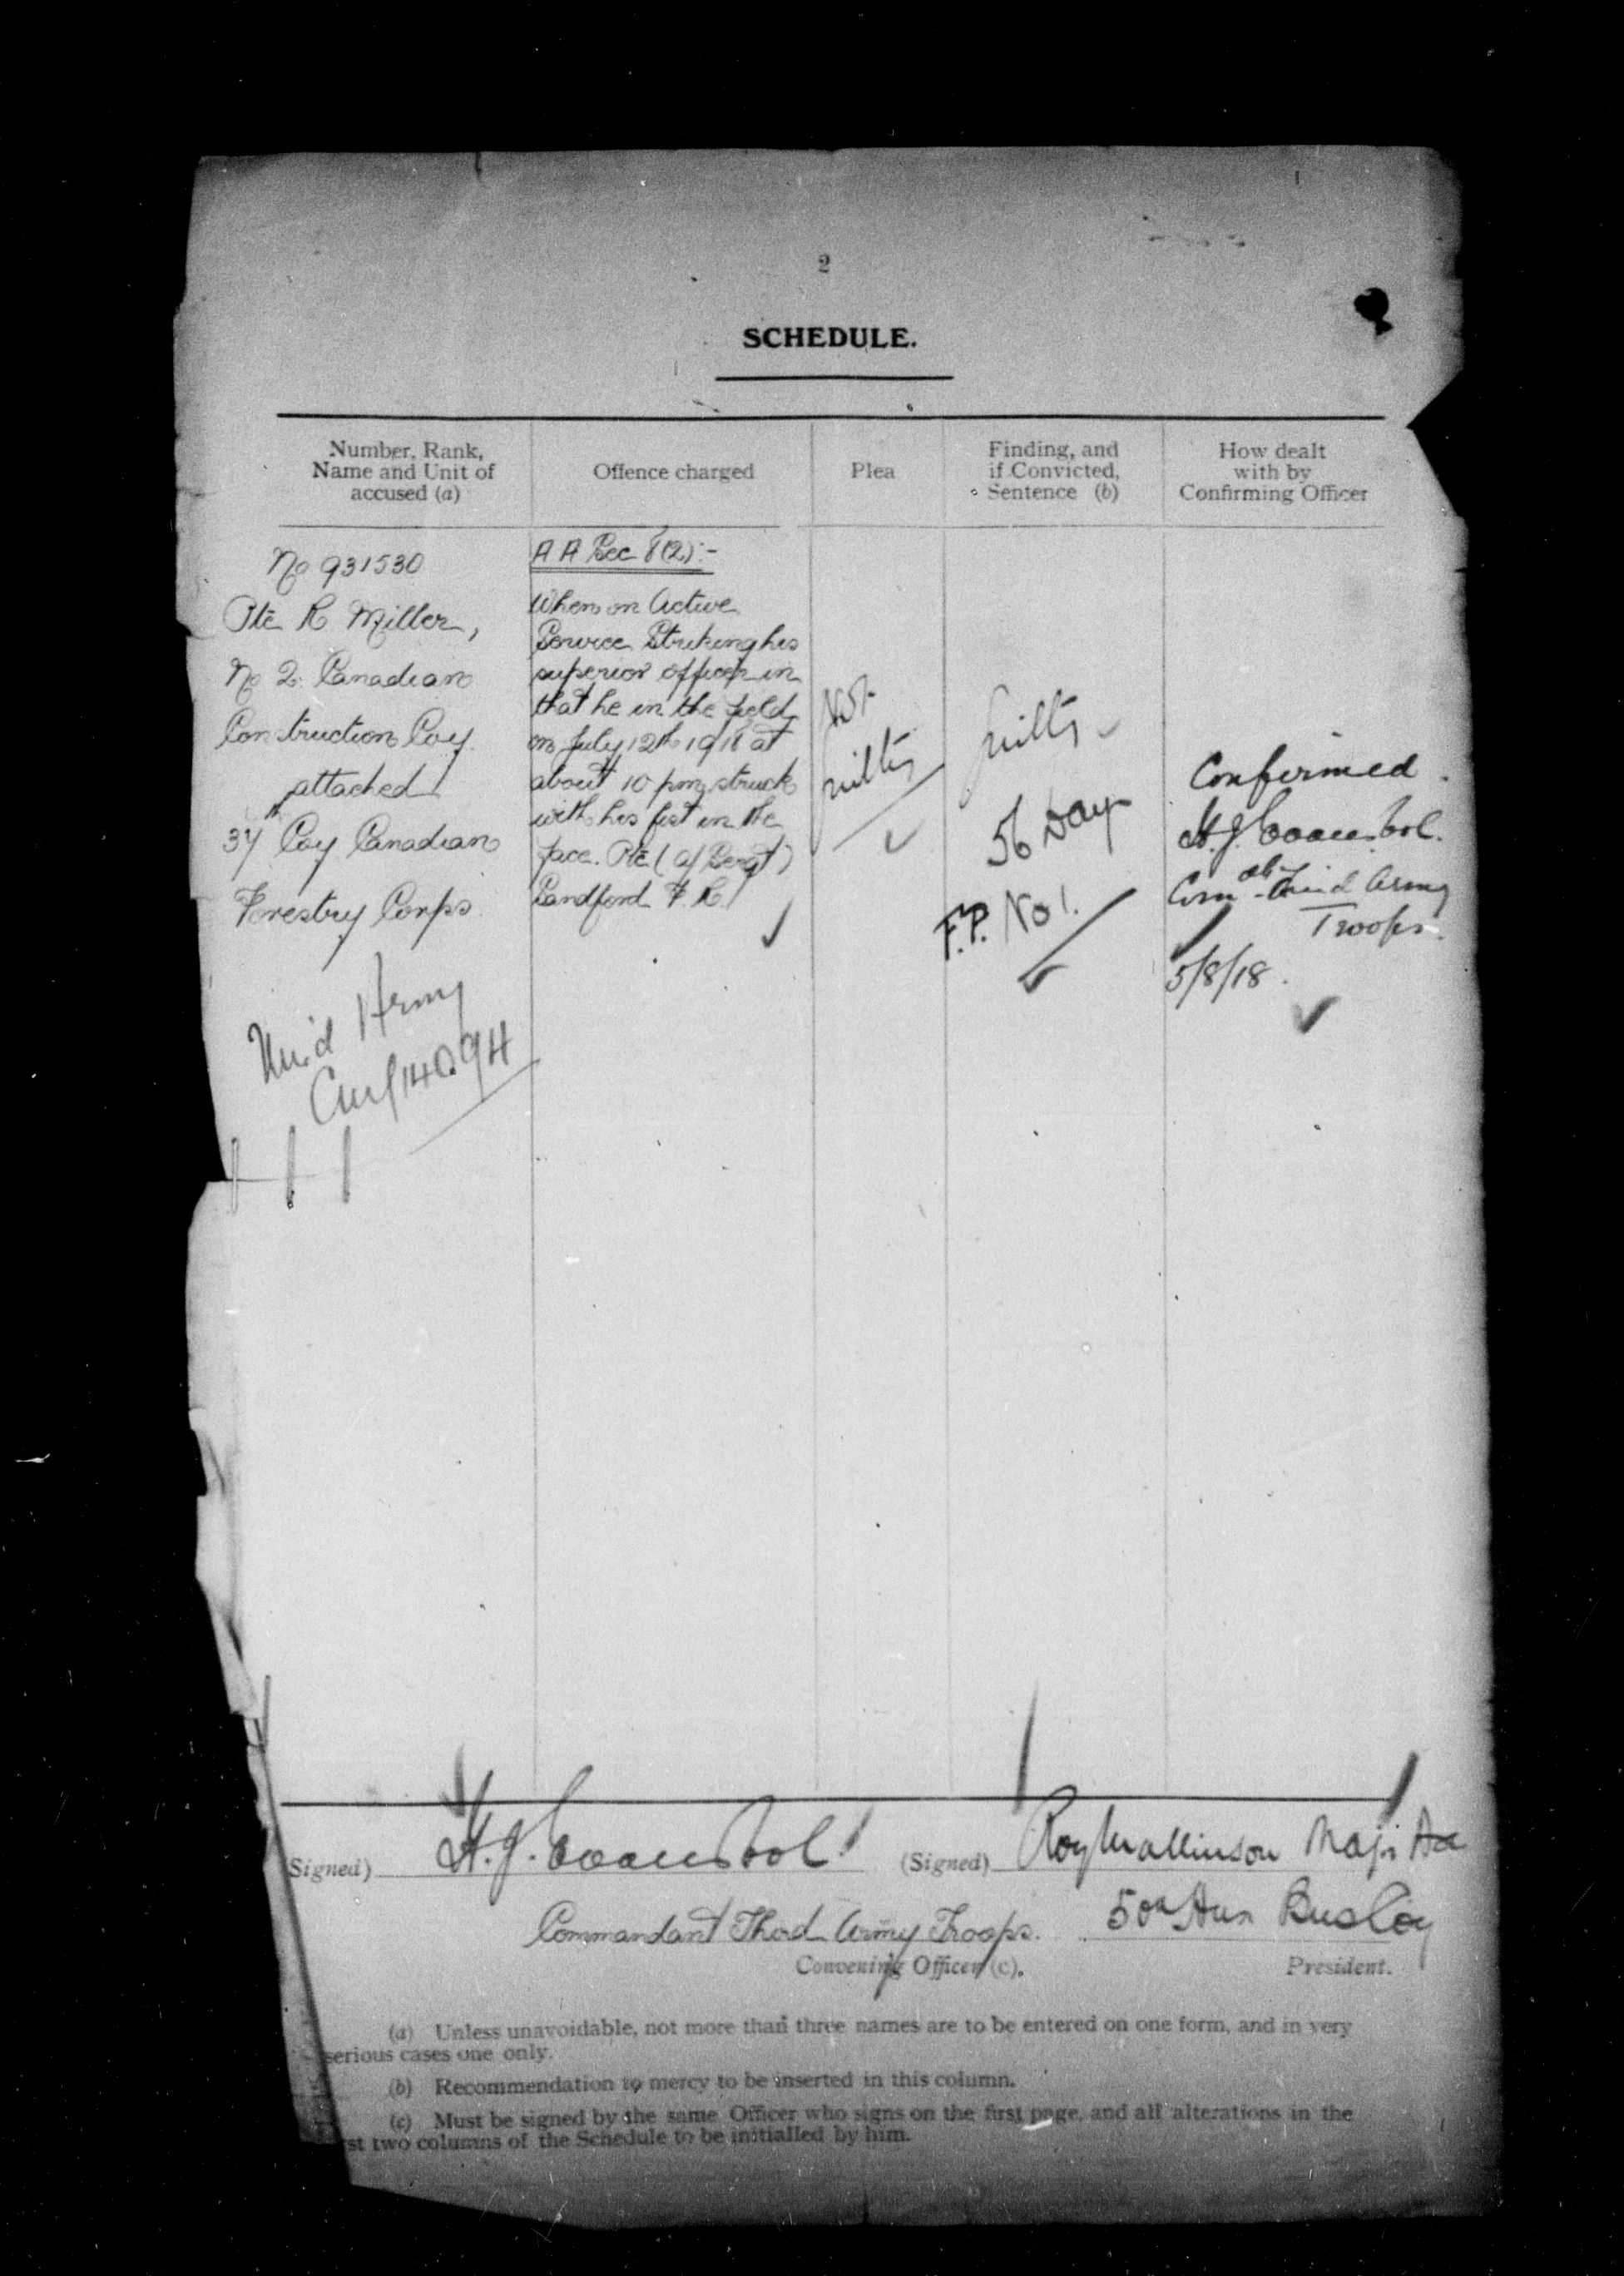 2
SCHEDULE.
Number, Rank,
Name and Unit of
accused (a)
Offence charged
Plea
Finding, and
if Convicted,
Sentence (b)
How dealt
with by
Confirming Officer
No 931530
Pte R Miller,
No 2. Canadian
Construction Coy.
attached
37th Coy Canadian
Forestry Corps
A A Sec 8(2):-
When on Active
Service Striking his
superior officer in
that he in the field
on July 12th 1918 at
about 10 pm struck
with his fist in the
face. Pte (a/Sergt)
Sandford F. R.
Not
guilty
Guilty
56 Days
F.P. No 1.
Confirmed.
Col.
Comdt Third Army
Troops.
5/8/18.
Third Army
(Signed)
Col
Commandant Third Army Troops.
Convening Officer (c).
(Signed) Roy Mallinson Major
President.
(a) Unless unavoidable, not more than three names are to be entered on one form, and in very
serious cases one only.
(b) Recommendation to mercy to be inserted in this column.
(c) Must be signed by the same Officer who signs on the first page, and all alterations in the
st two columns of the Schedule to be initialled by him.